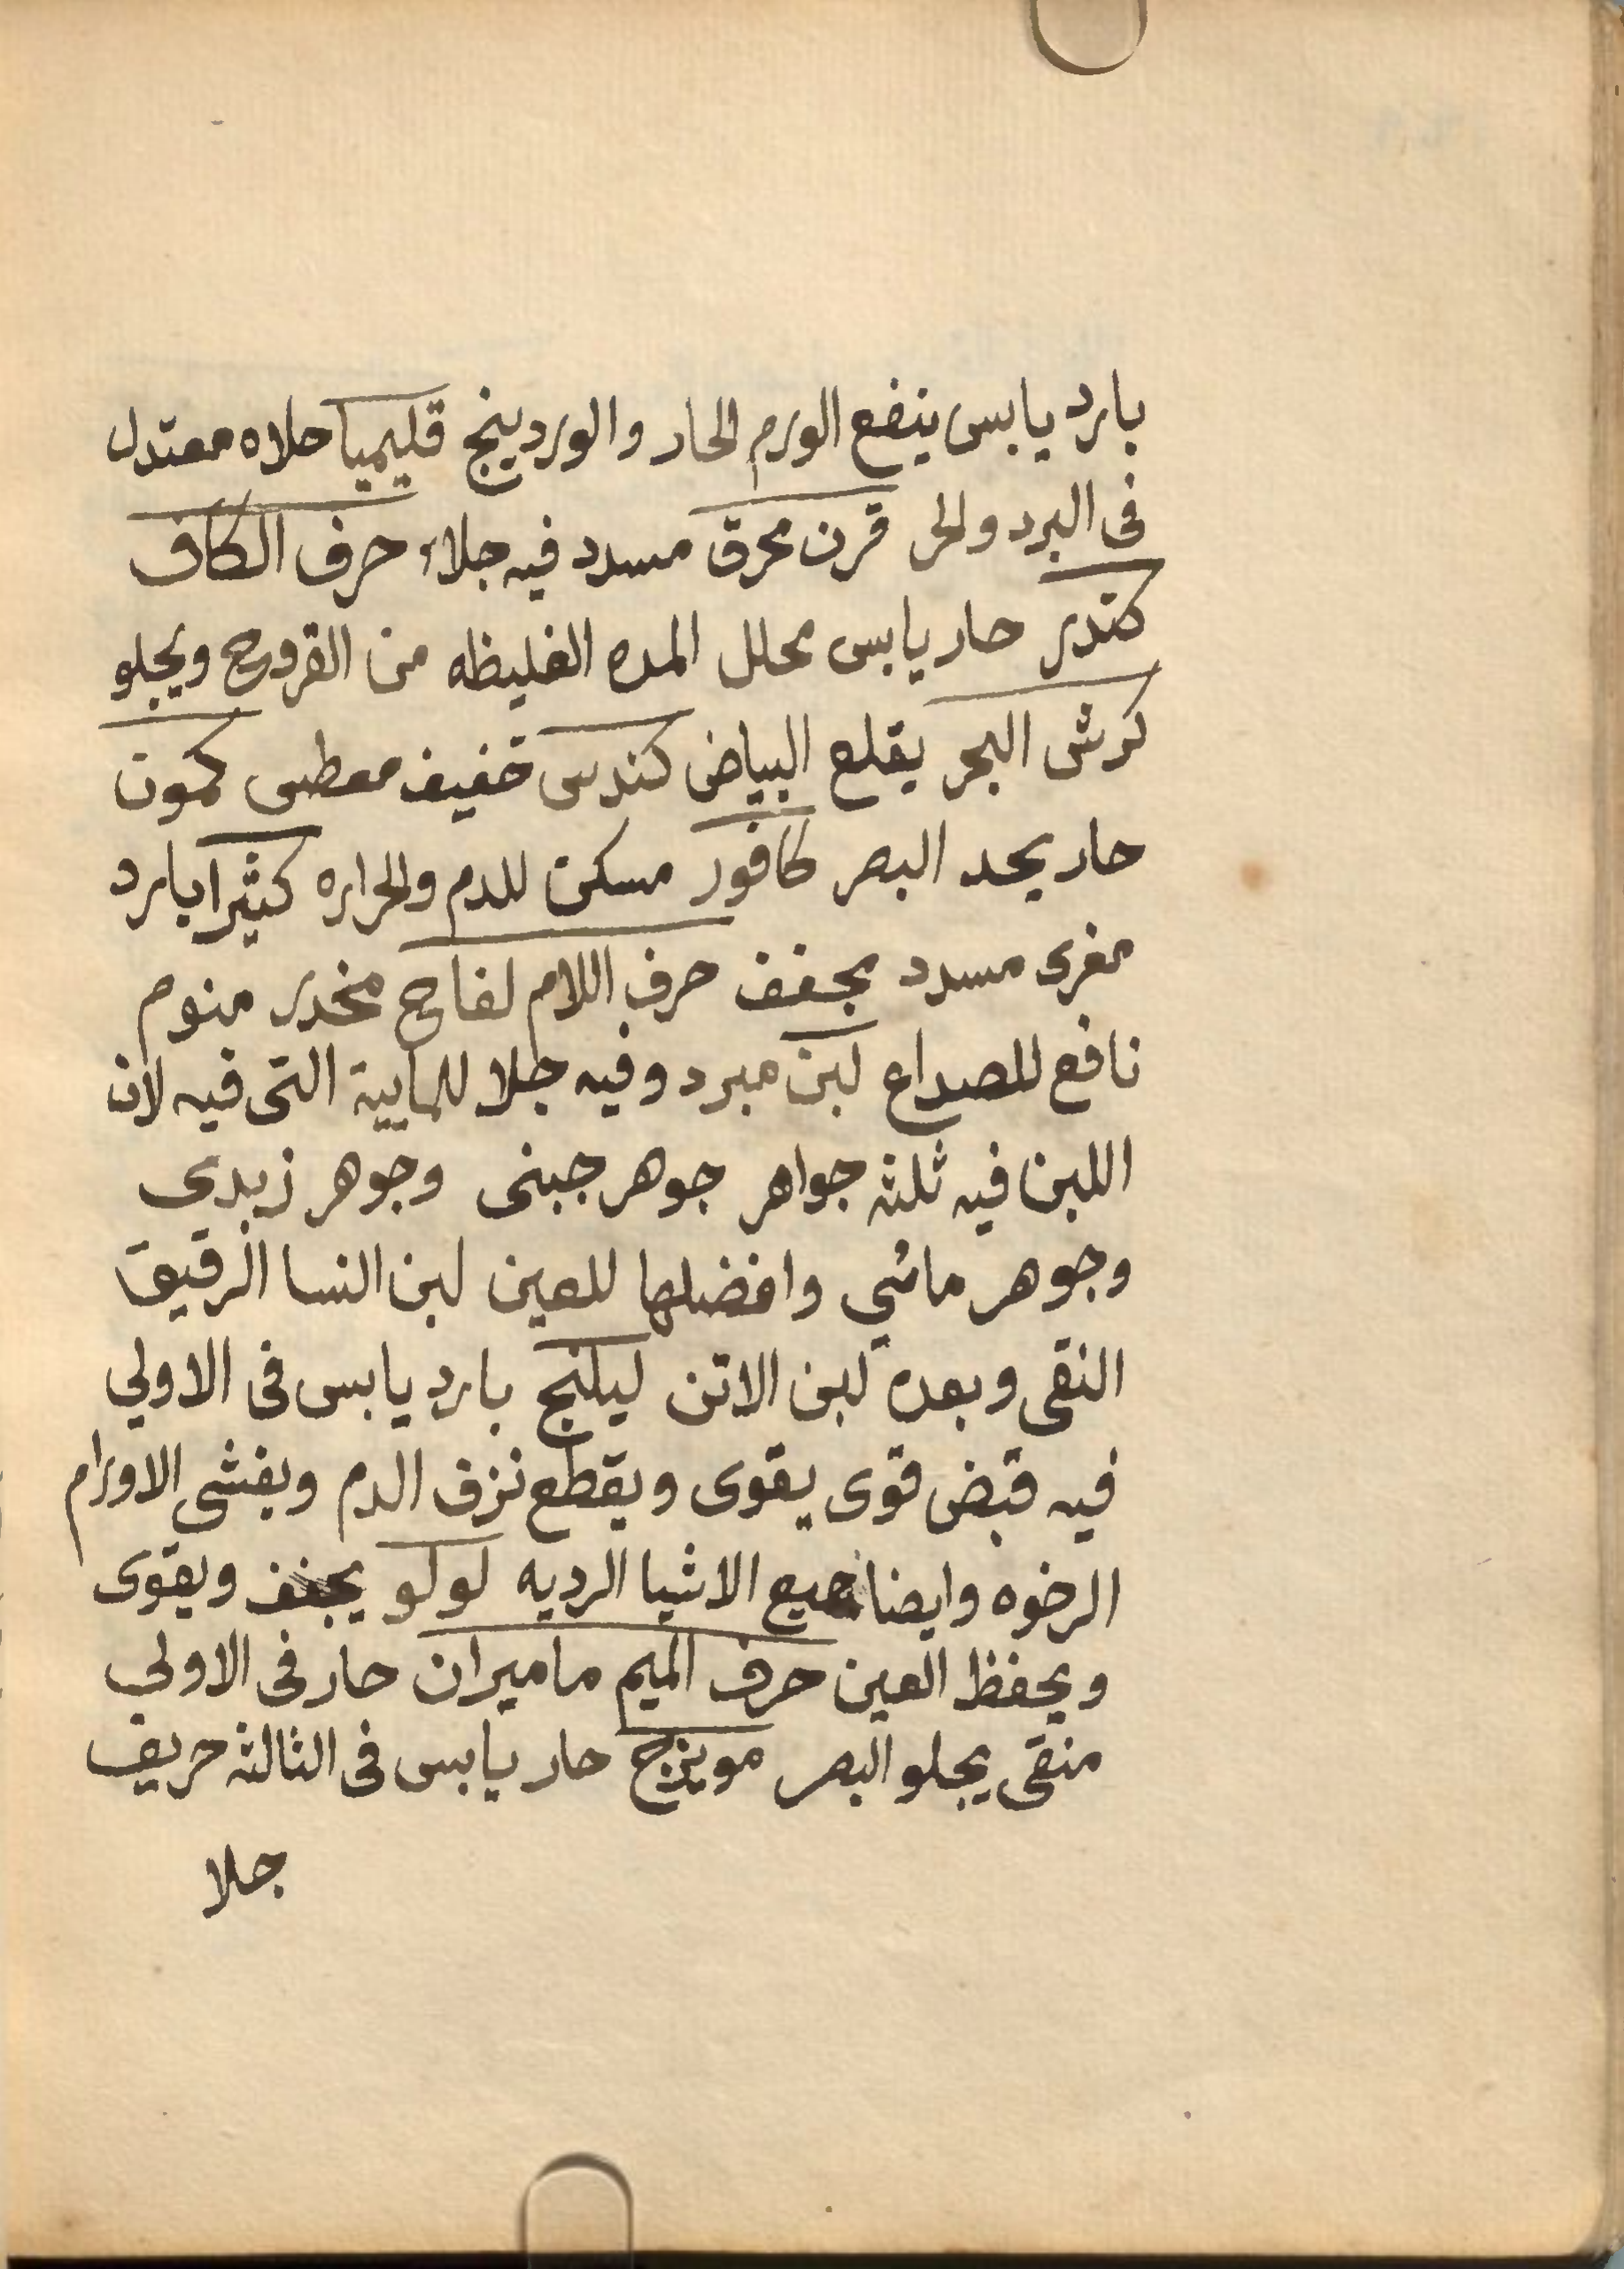 بارد يابس ينفع الورم الحار والوردينج قليميا جلاه معتدل
فى البرد والحر قرن محرق مسدد فيه جلاء حرف الكاف
كندر حار يابس محلل المده الغليظه من القروح ويجلو
كرش البحر يقلع البياض كندس خفيف معطس كمون
حار يحد البصر كافور مسكن للدم والحراره كثيرا بارد
مغرى مسدد مجفف حرف اللام لفاح مخدر منوم
نافع للصداع لبن مبرد وفيه جلا للمايية التى فيه لان
اللبن فيه ثلثه جواهر جوهر جبنى وجوهر زبدي
وجوهر مائي وافضلها للعين لبن النسا الرقيق
النقى وبعده لبن الاتن ليلنج بارد يابس فى الاولي
فيه قبض قوى يقوى ويقطع نزف الدم ويفشى الاورام
الرخوه وايضا جميع الاشيا الرديه لولو يجفف ويقوى
ويحفظ العين حرف الميم ماميران حار فى الاولي
منقى يجلو البصر مويزج حار يابس فى الثالثه حريف
جلا